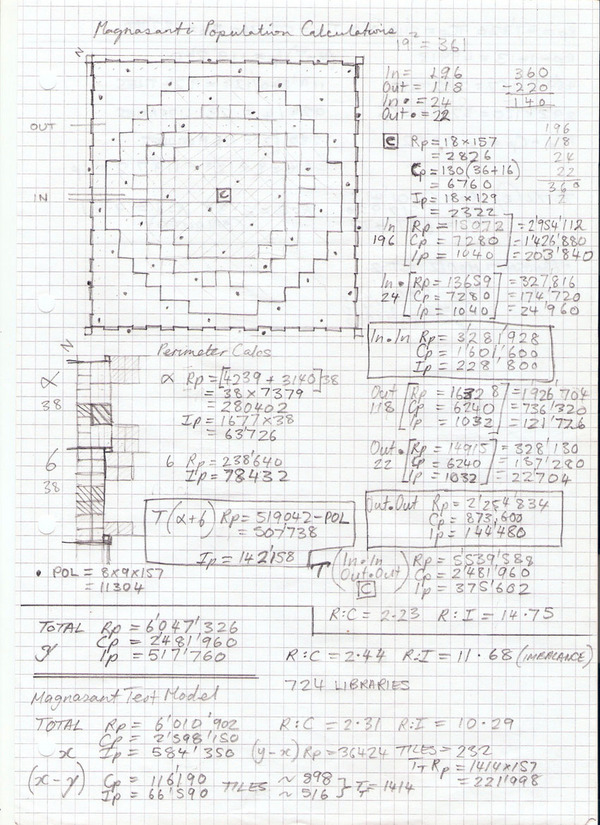 Magnasanti Population Calculations
19² = 361
N
OUT
IN
C
In = 196
Out = 118
In• = 24
Out• = 22
360
-220
140
196
118
24
22
360
12
C Rp = 18×157
= 2826
Cp = 130(36+16)
= 6760
Ip = 18×129
= 2322
In 196 [Rp = 15072] = 2'954'112
[Cp = 7280] = 1'426'880
[Ip = 1040] = 203'840
In• 24 [Rp = 13659] = 327'816
[Cp = 7280] = 174'720
[Ip = 1040] = 24'960
In•In Rp = 3'281'928
Cp = 1'601'600
Ip = 228'800
Out 118 [Rp = 16328] = 1'926'704
[Cp = 6240] = 736'320
[Ip = 1032] = 121'776
Out• 22 [Rp = 14915] = 328'130
[Cp = 6240] = 137'280
[Ip = 1032] = 22704
Out•Out Rp = 2'254'834
Cp = 873,600
Ip = 144'480
N
α
38
6
38
Perimeter Calcs
α Rp = [4239 + 3140]38
= 38×7379
= 280402
Ip = 1677×38
= 63726
6 Rp = 238'640
Ip = 78432
T(α+6) Rp = 519042-POL
= 507'738
Ip = 142'158
T (In•In Out•Out C) Rp = 5'539'588
Cp = 2'481'960
Ip = 375'602
R:C = 2.23 R:I = 14.75
• POL = 8×9×157
= 11304
TOTAL Rp = 6'047'326
Cp = 2'481'960
y Ip = 517'760
R:C = 2.44 R:I = 11.68 (IMBALANCE)
724 LIBRARIES
Magnasant Test Model
TOTAL Rp = 6'010'902
Cp = 2'598'150
x Ip = 584'350
R:C = 2.31 R:I = 10.29
(y-x) Rp = 36424 TILES = 232
(x-y) Cp = 116'190 TILES ~ 898
Ip = 66'590 ~ 516 } T = 1414
T Rp = 1414×157
= 221'998